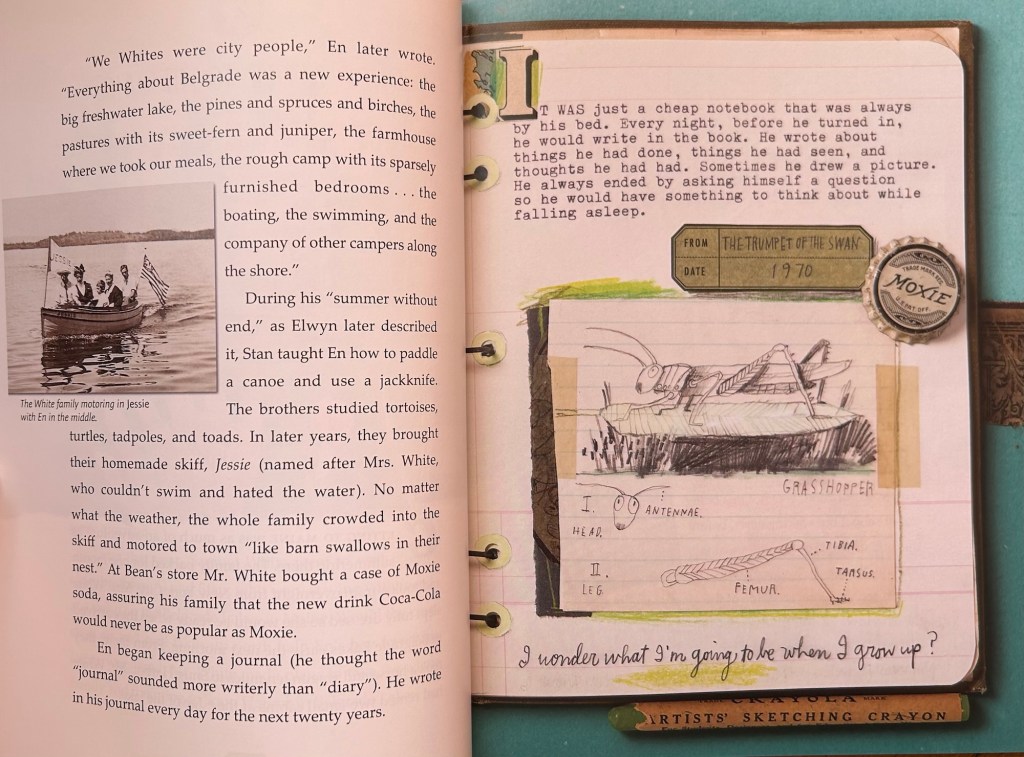 “We Whites were city people,” En later wrote.
“Everything about Belgrade was a new experience: the
big freshwater lake, the pines and spruces and birches, the
pastures with its sweet-fern and juniper, the farmhouse
where we took our meals, the rough camp with its sparsely
furnished bedrooms . . . the
boating, the swimming, and the
company of other campers along
the shore.”
During his “summer without
end,” as Elwyn later described
it, Stan taught En how to paddle
a canoe and use a jackknife.
The brothers studied tortoises,
turtles, tadpoles, and toads. In later years, they brought
their homemade skiff, Jessie (named after Mrs. White,
who couldn’t swim and hated the water). No matter
what the weather, the whole family crowded into the
skiff and motored to town “like barn swallows in their
nest.” At Bean’s store Mr. White bought a case of Moxie
soda, assuring his family that the new drink Coca-Cola
would never be as popular as Moxie.
En began keeping a journal (he thought the word
“journal” sounded more writerly than “diary”). He wrote
in his journal every day for the next twenty years.
JESSIE
The White family motoring in Jessie
with En in the middle.
IT WAS just a cheap notebook that was always
by his bed. Every night, before he turned in,
he would write in the book. He wrote about
things he had done, things he had seen, and
thoughts he had had. Sometimes he drew a picture.
He always ended by asking himself a question
so he would have something to think about while
falling asleep.
FROM THE TRUMPET OF THE SWAN
DATE 1970
TRADE MARK REG.
MOXIE
U.S. PAT. OFF.
GRASSHOPPER
I.
HEAD.
ANTENNAE.
II.
LEG.
TIBIA.
TARSUS.
FEMUR.
I wonder what I'm going to be when I grow up?
CRAYOLA
ARTISTS' SKETCHING CRAYON